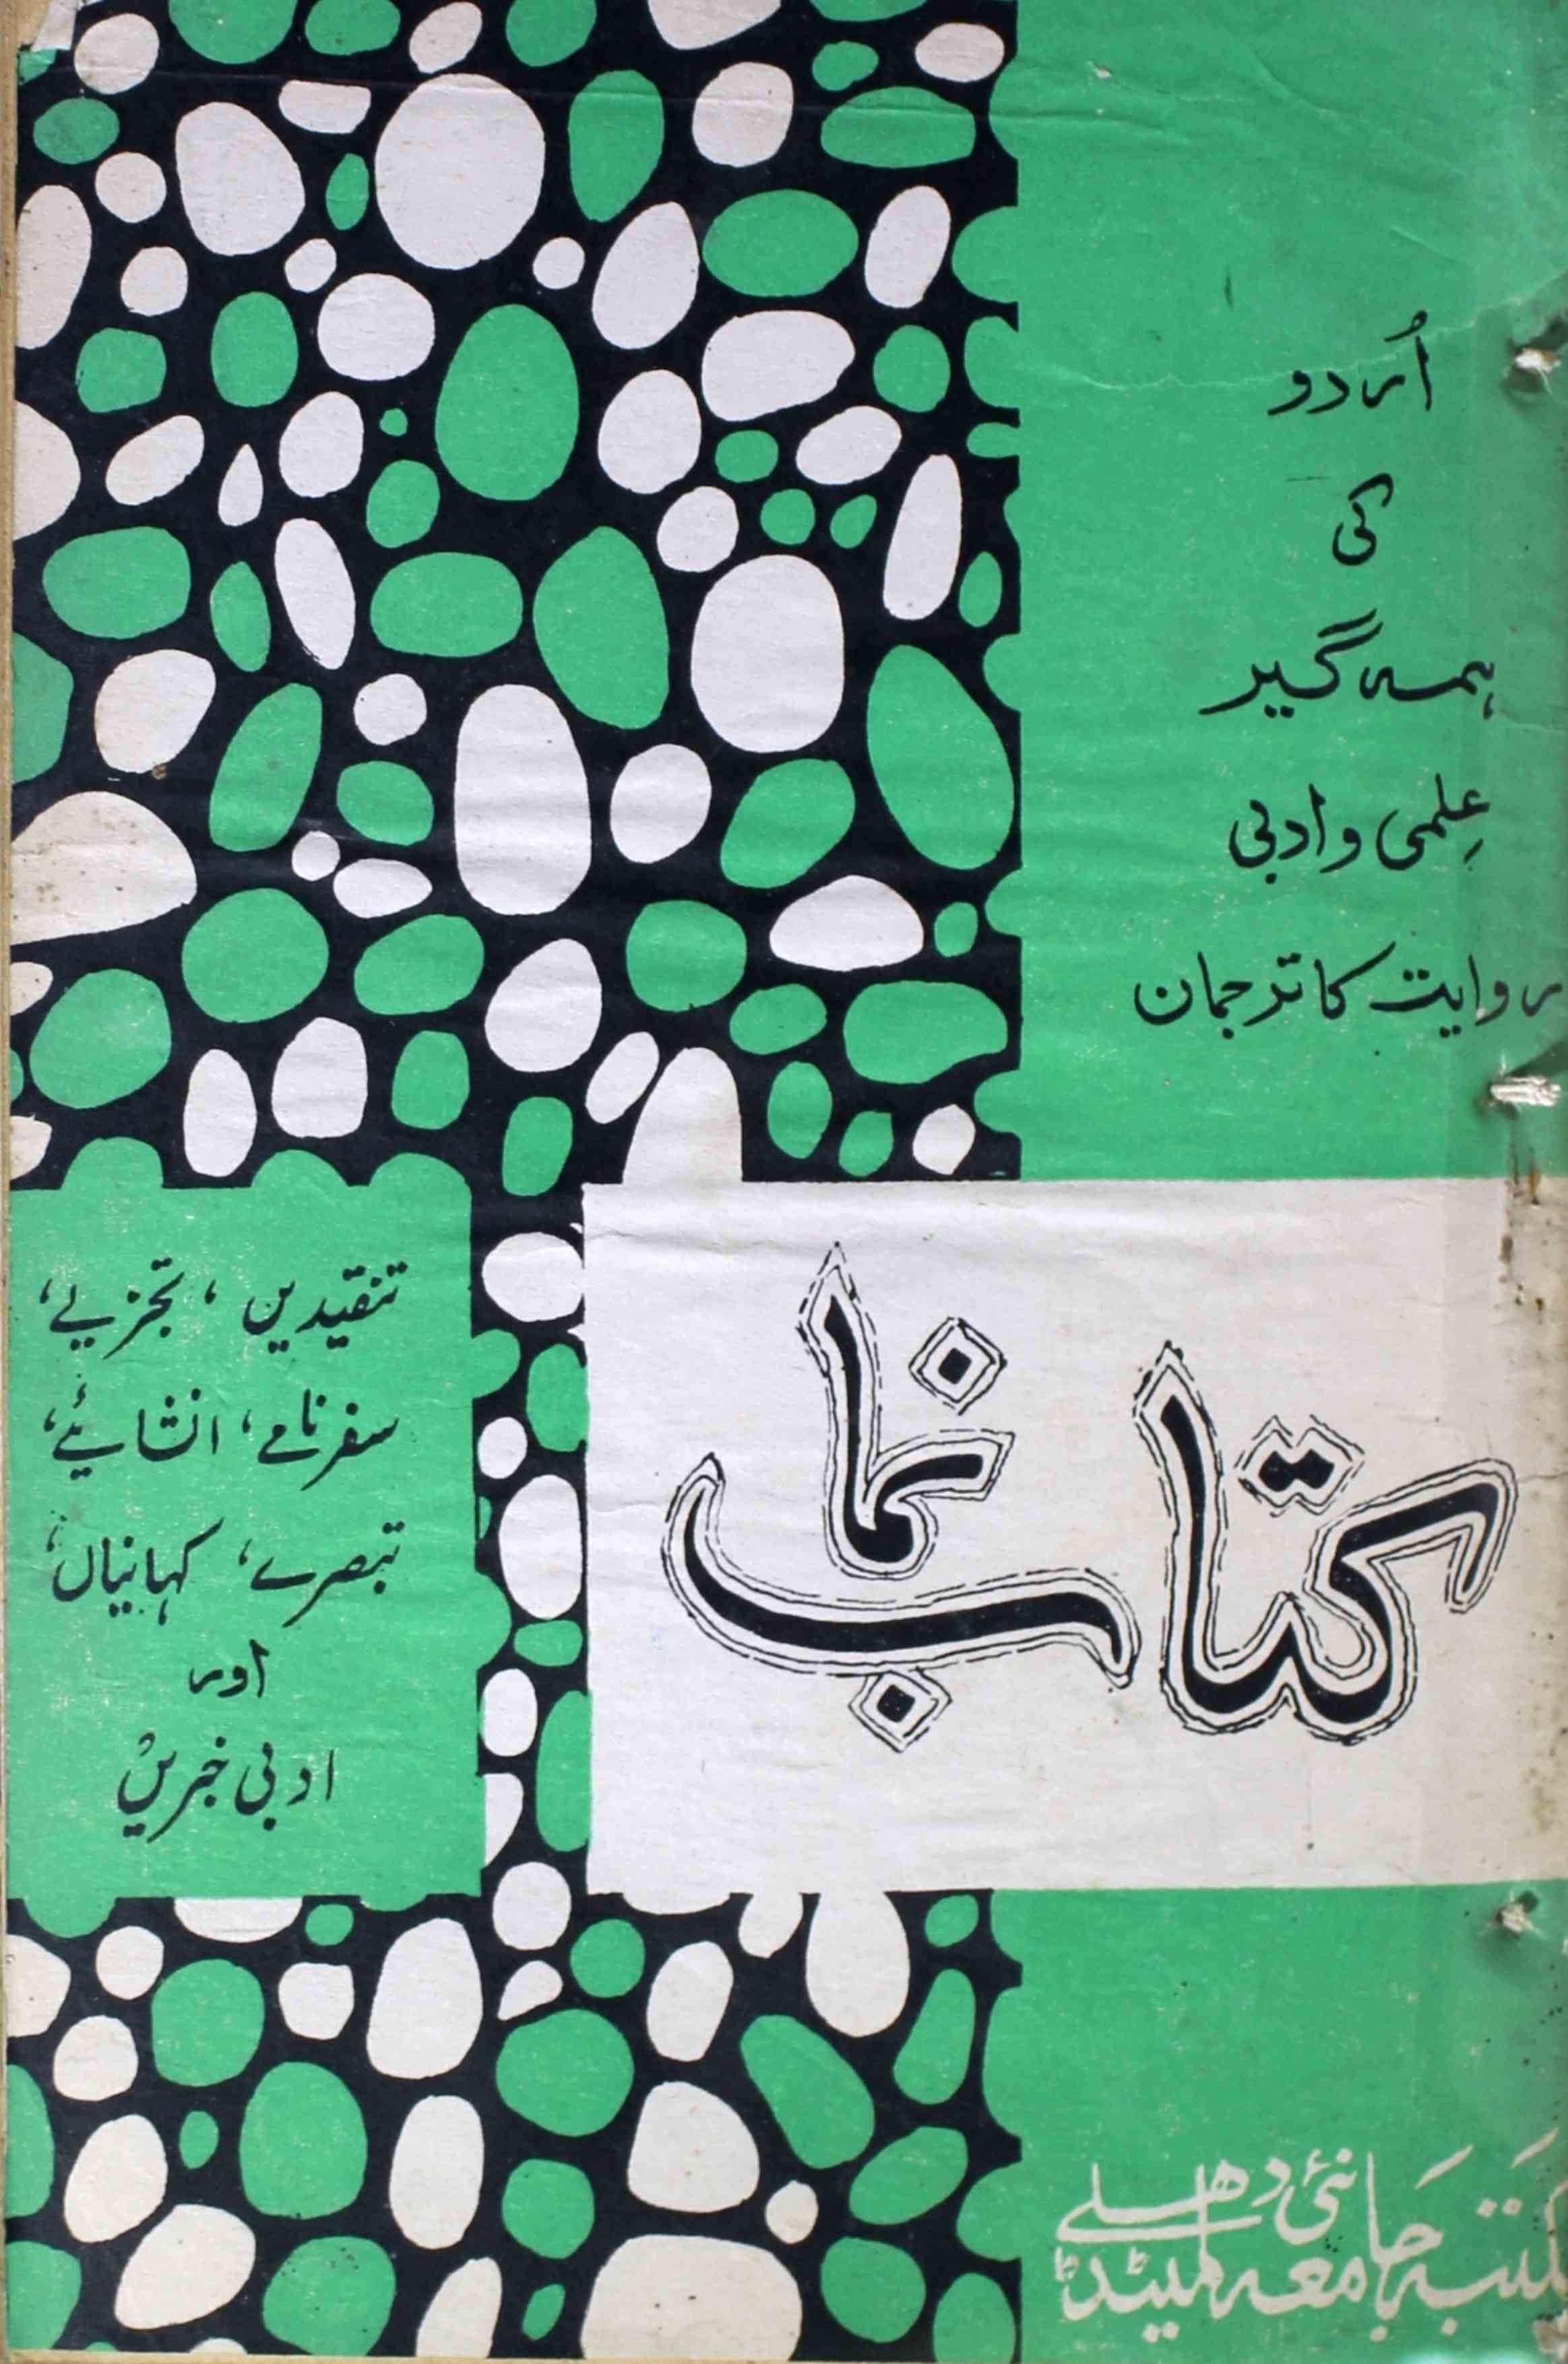 اُردو
کی
ہمہ گیر
عِلمی و ادبی
روایت کا ترجمان
کتاب نما
تنقیدیں ، تجزیے ،
سفرنامے ، انشائیے ،
تبصرے ، کہانیاں ،
اور
ادبی خبریں
مکتبہ جامعہ لمیٹڈ
نئی دھلی